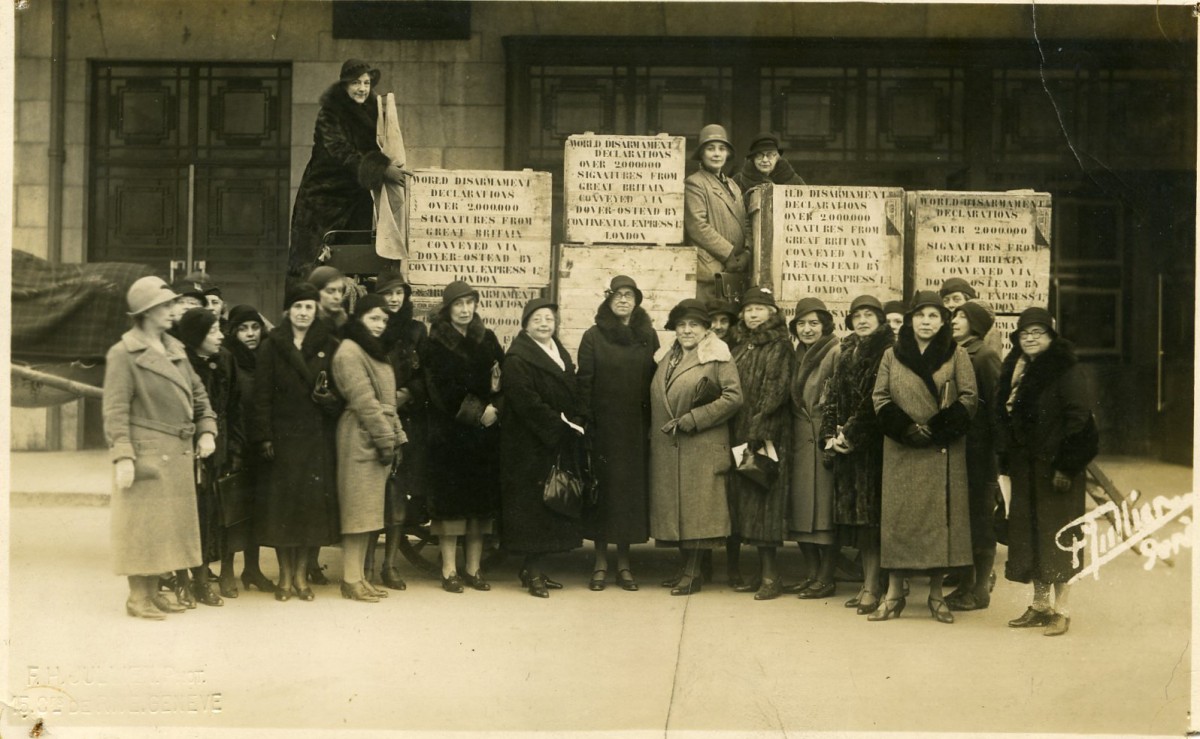 WORLD DISARMAMENT
DECLARATIONS
OVER 2.000.000
SIGNATURES FROM
GREAT BRITAIN
CONVEYED VIA
DOVER-OSTEND BY
CONTINENTAL EXPRESS LD
LONDON
WORLD DISARMAMENT
DECLARATIONS
OVER 2.000.000
SIGNATURES FROM
GREAT BRITAIN
CONVEYED VIA.
DOVER-OSTEND BY
CONTINENTAL EXPRESS
LONDON
DISARMAMENT
DECLARATIONS
OVER 2.000.000
SIGNATURES FROM
GREAT BRITAIN
CONVEYED VIA.
OVER-OSTEND BY
LONDON
WORLD DISARMAMENT
DECLARATIONS
OVER 2.000.000
SIGNATURES FROM
GREAT BRITAIN
CONVEYED VIA
OSTEND BY
EXPRESS
LONDON
DISARMAMENT
DECLARATIONS
F.H. JULLIEN
GENÈVE
Jullien